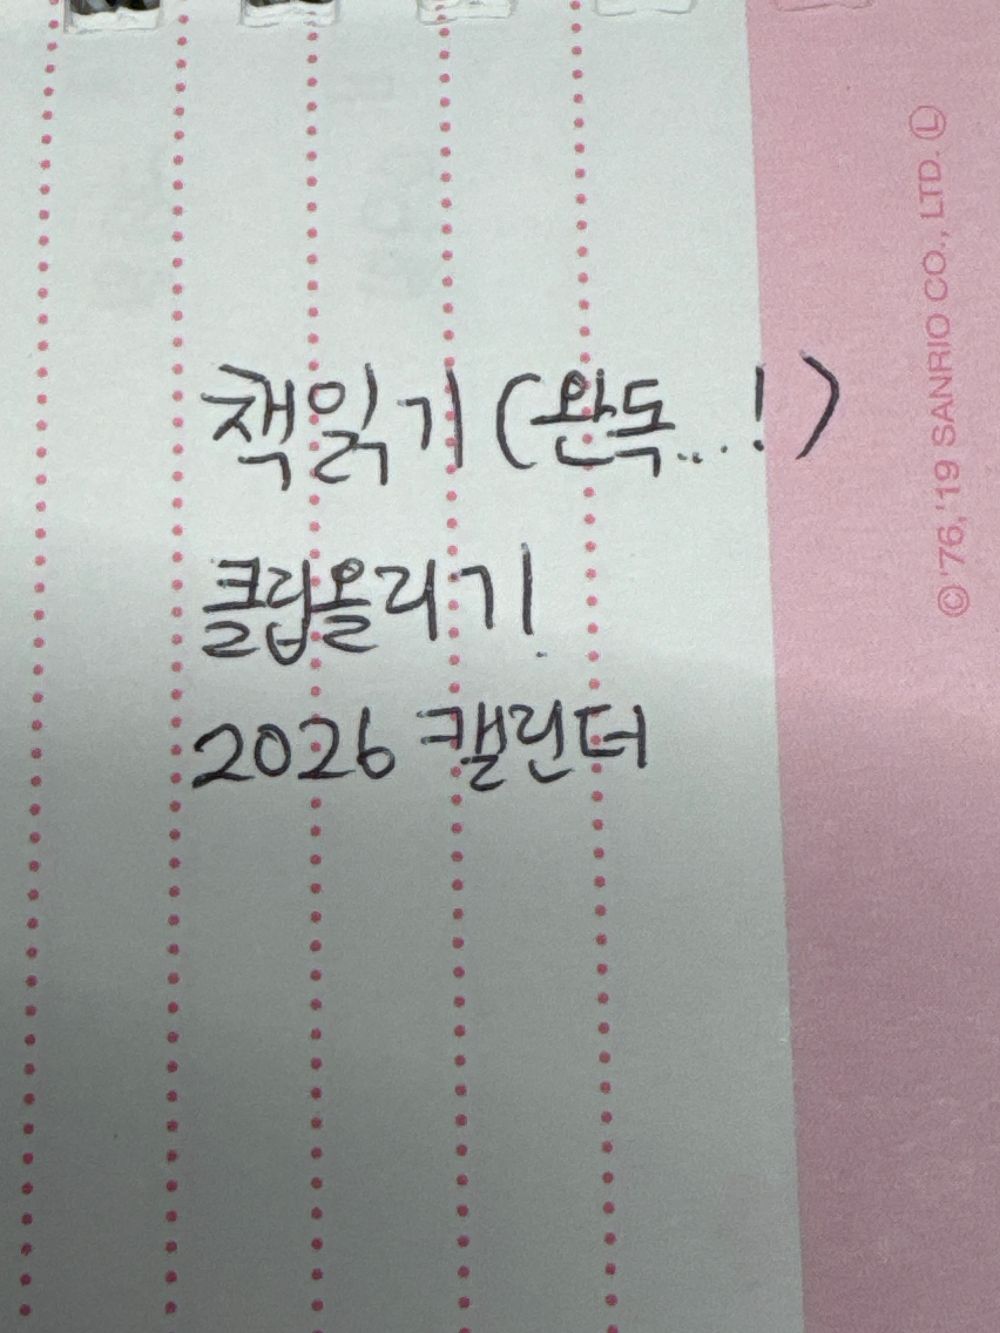 책읽기 (완독...!)
클립올리기
2026 캘린더
© '76, '19 SANRIO CO., LTD. Ⓛ